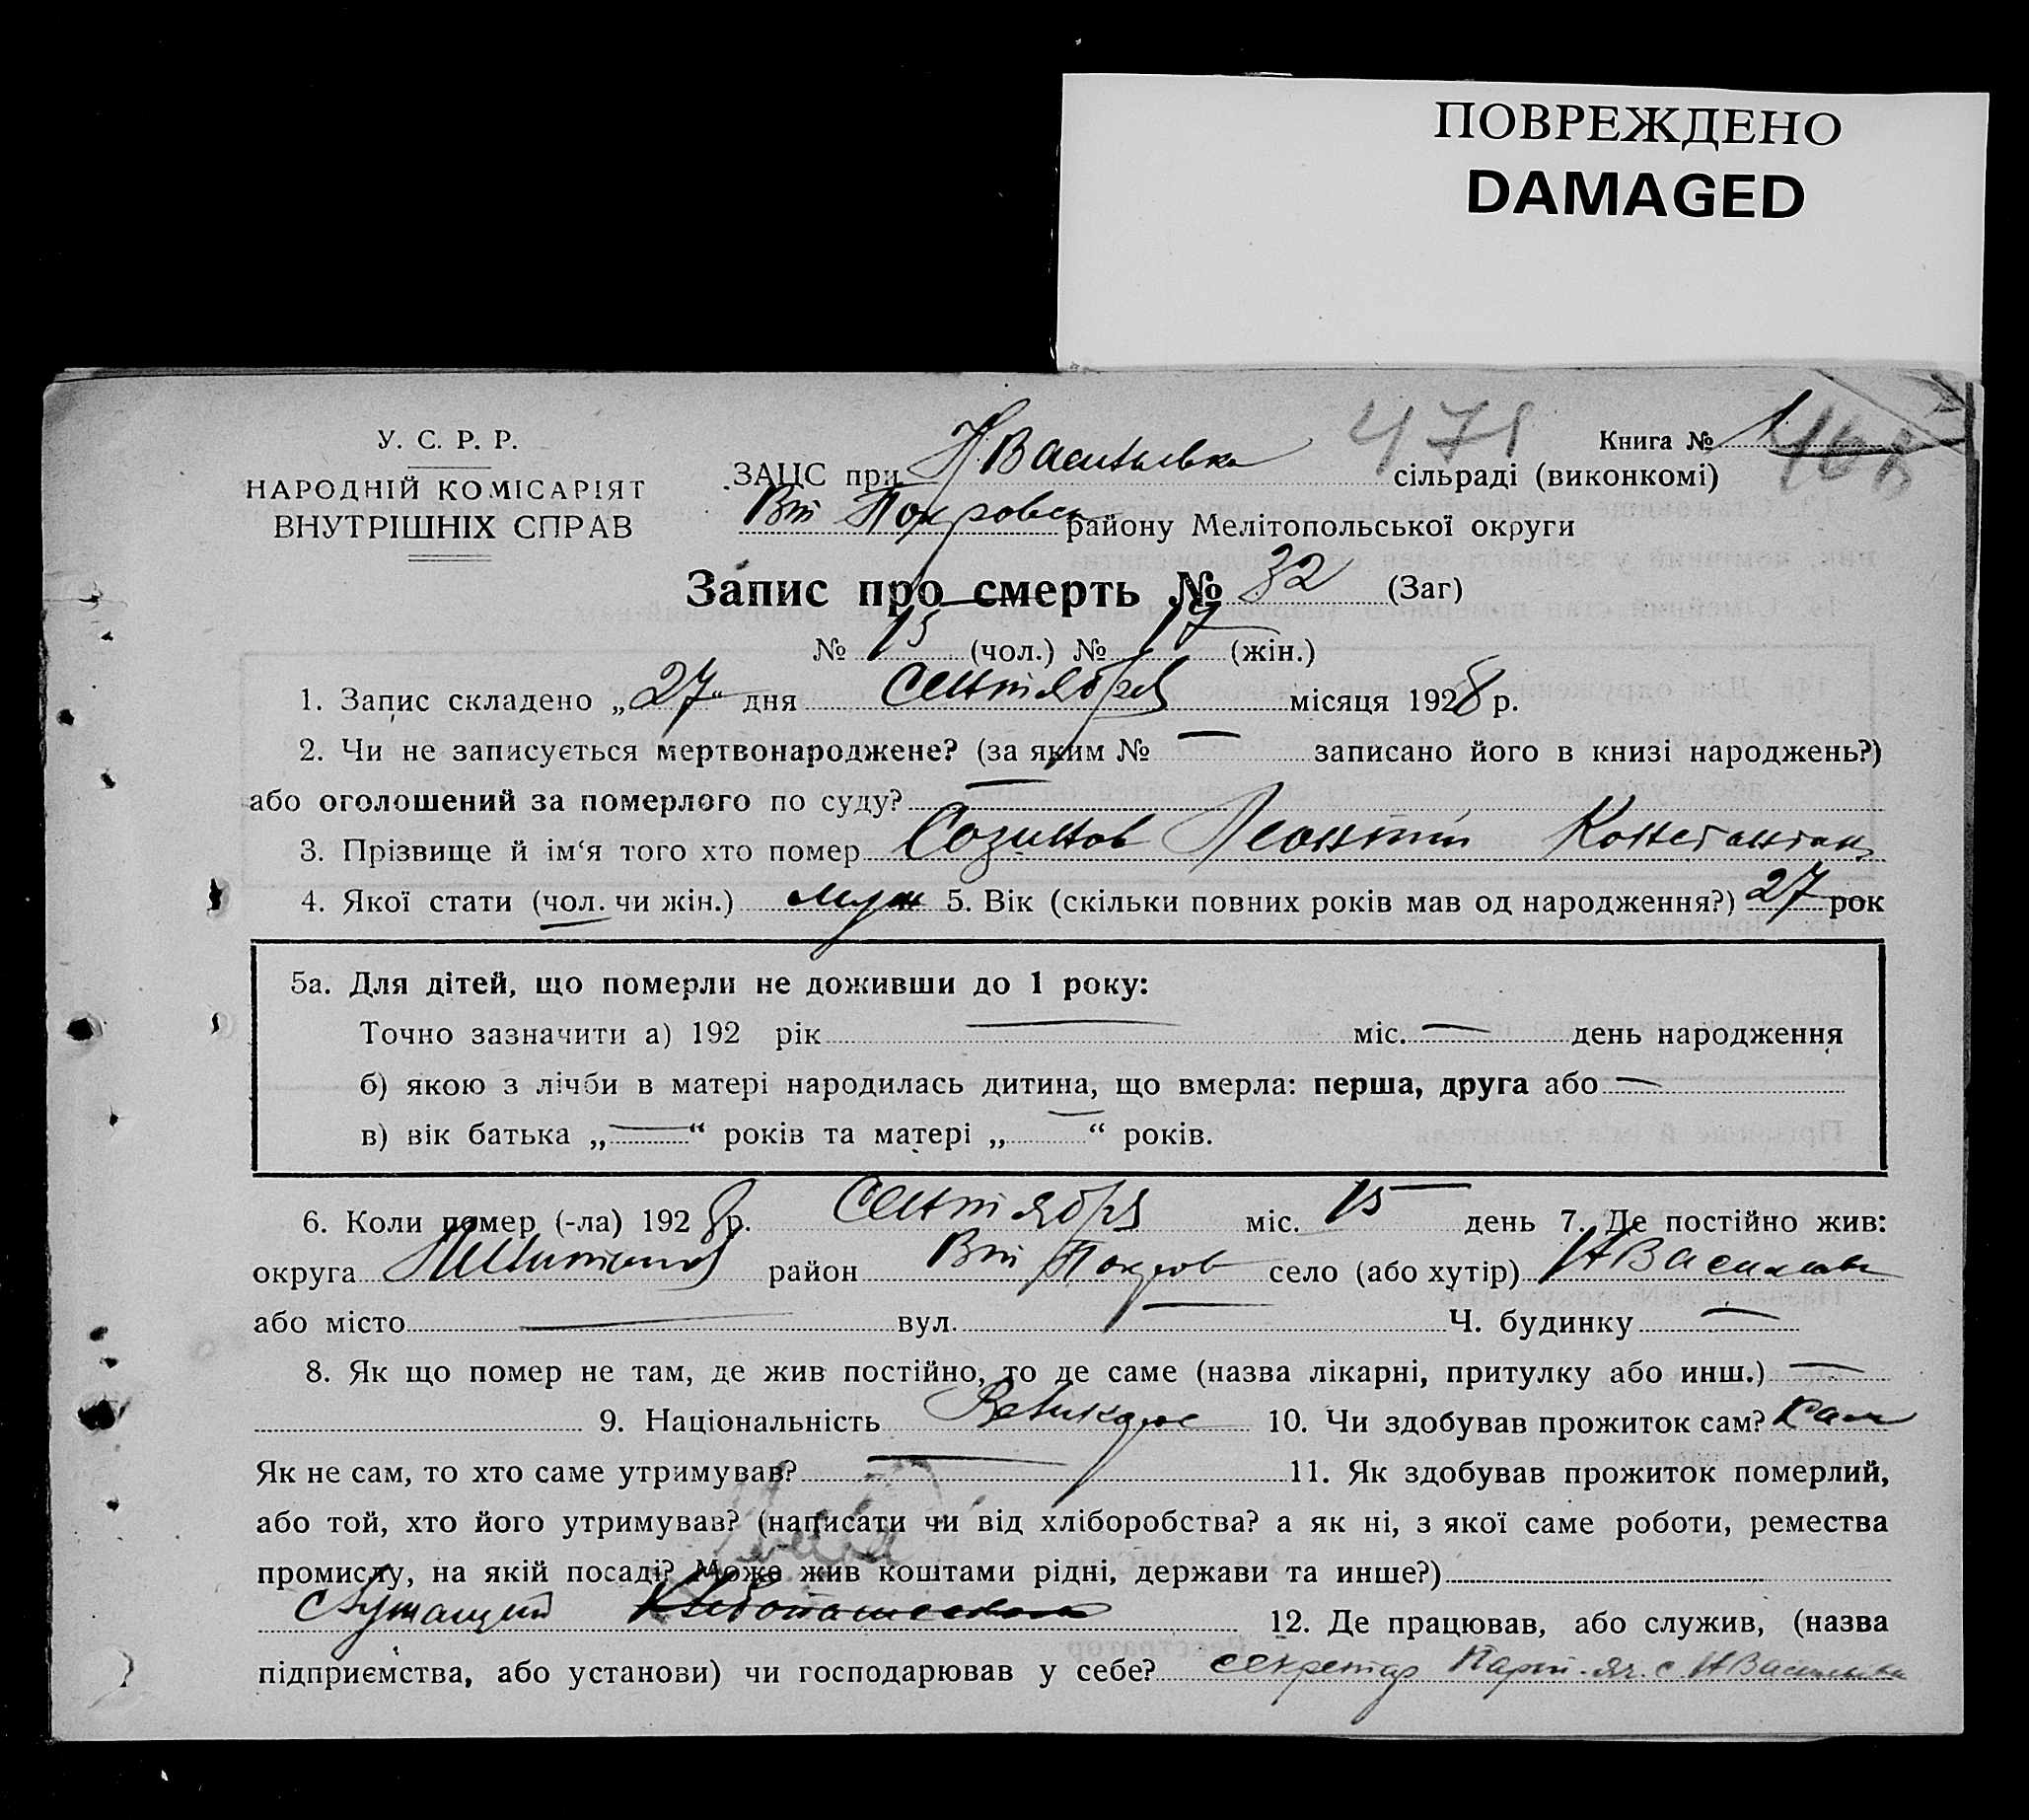 ПОВРЕЖДЕНО
DAMAGED
У. С. Р. Р.
НАРОДНІЙ КОМІСАРІЯТ
ВНУТРІШНІХ СПРАВ
471
Книга № 1
ЗАЦС при Н Васильевка сільраді (виконкомі)
Вт Покровск району Мелітопольської округи
Запис про смерть № 32 (Заг)
№ 15 (чол.) № 17 (жін.)
1. Запис складено „27“ дня Сентября місяця 1928 р.
2. Чи не записується мертвонароджене? (за яким № — записано його в книзі народжень?)
або оголошений за померлого по суду? —
3. Прізвище й ім‘я того хто помер Созинов Леонтий Константин
4. Якої стати (чол. чи жін.) муж 5. Вік (скільки повних років мав од народження?) 27 рок
5а. Для дітей, що померли не доживши до 1 року:
Точно зазначити а) 192 рік — міс. — день народження
б) якою з лічби в матері народилась дитина, що вмерла: перша, друга або —
в) вік батька „—“ років та матері „—“ років.
6. Коли помер (-ла) 1928 р. Сентября міс. 15 день 7. Де постійно жив:
округа район Вт Покров село (або хутір) Н Васильевк
або місто — вул. — Ч. будинку —
8. Як що помер не там, де жив постійно, то де саме (назва лікарні, притулку або инш.) —
9. Національність Великорос 10. Чи здобував прожиток сам? Сам
Як не сам, то хто саме утримував? — 11. Як здобував прожиток померлий,
або той, хто його утримував? (написати чи від хліборобства? а як ні, з якої саме роботи, ремества
промислу, на якій посаді? Може жив коштами рідні, держави та инше?)
Служащий 12. Де працював, або служив, (назва
підприємства, або установи) чи господарював у себе? секретар Парт. яч. с Н Васильевки